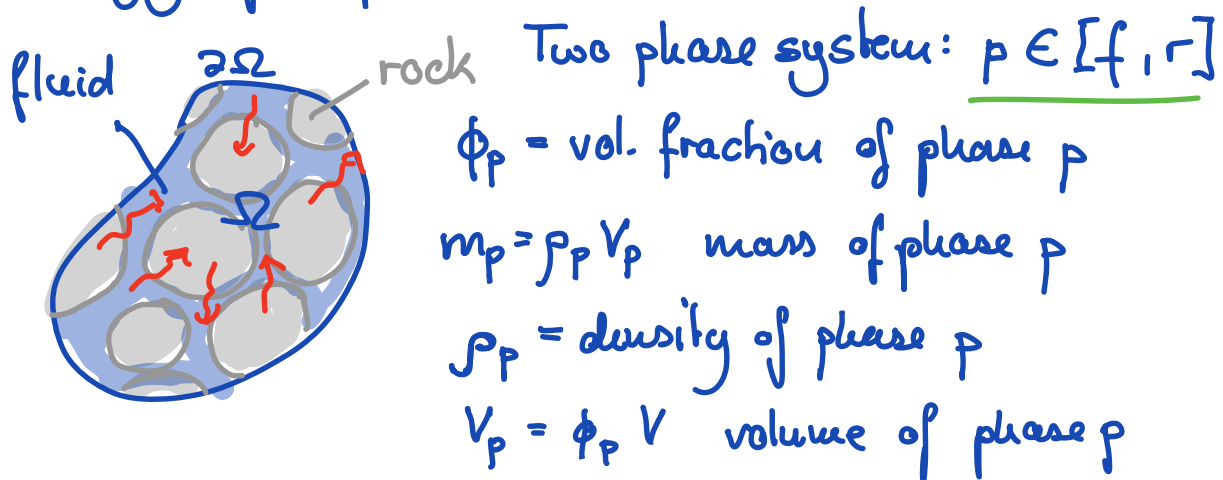 fluid
∂Ω
rock
Ω
Two phase system: p ∈ [f, r]
ϕₚ = vol. fraction of phase p
mₚ = ρₚ Vₚ mass of phase p
ρₚ = density of phase p
Vₚ = ϕₚ V volume of phase p